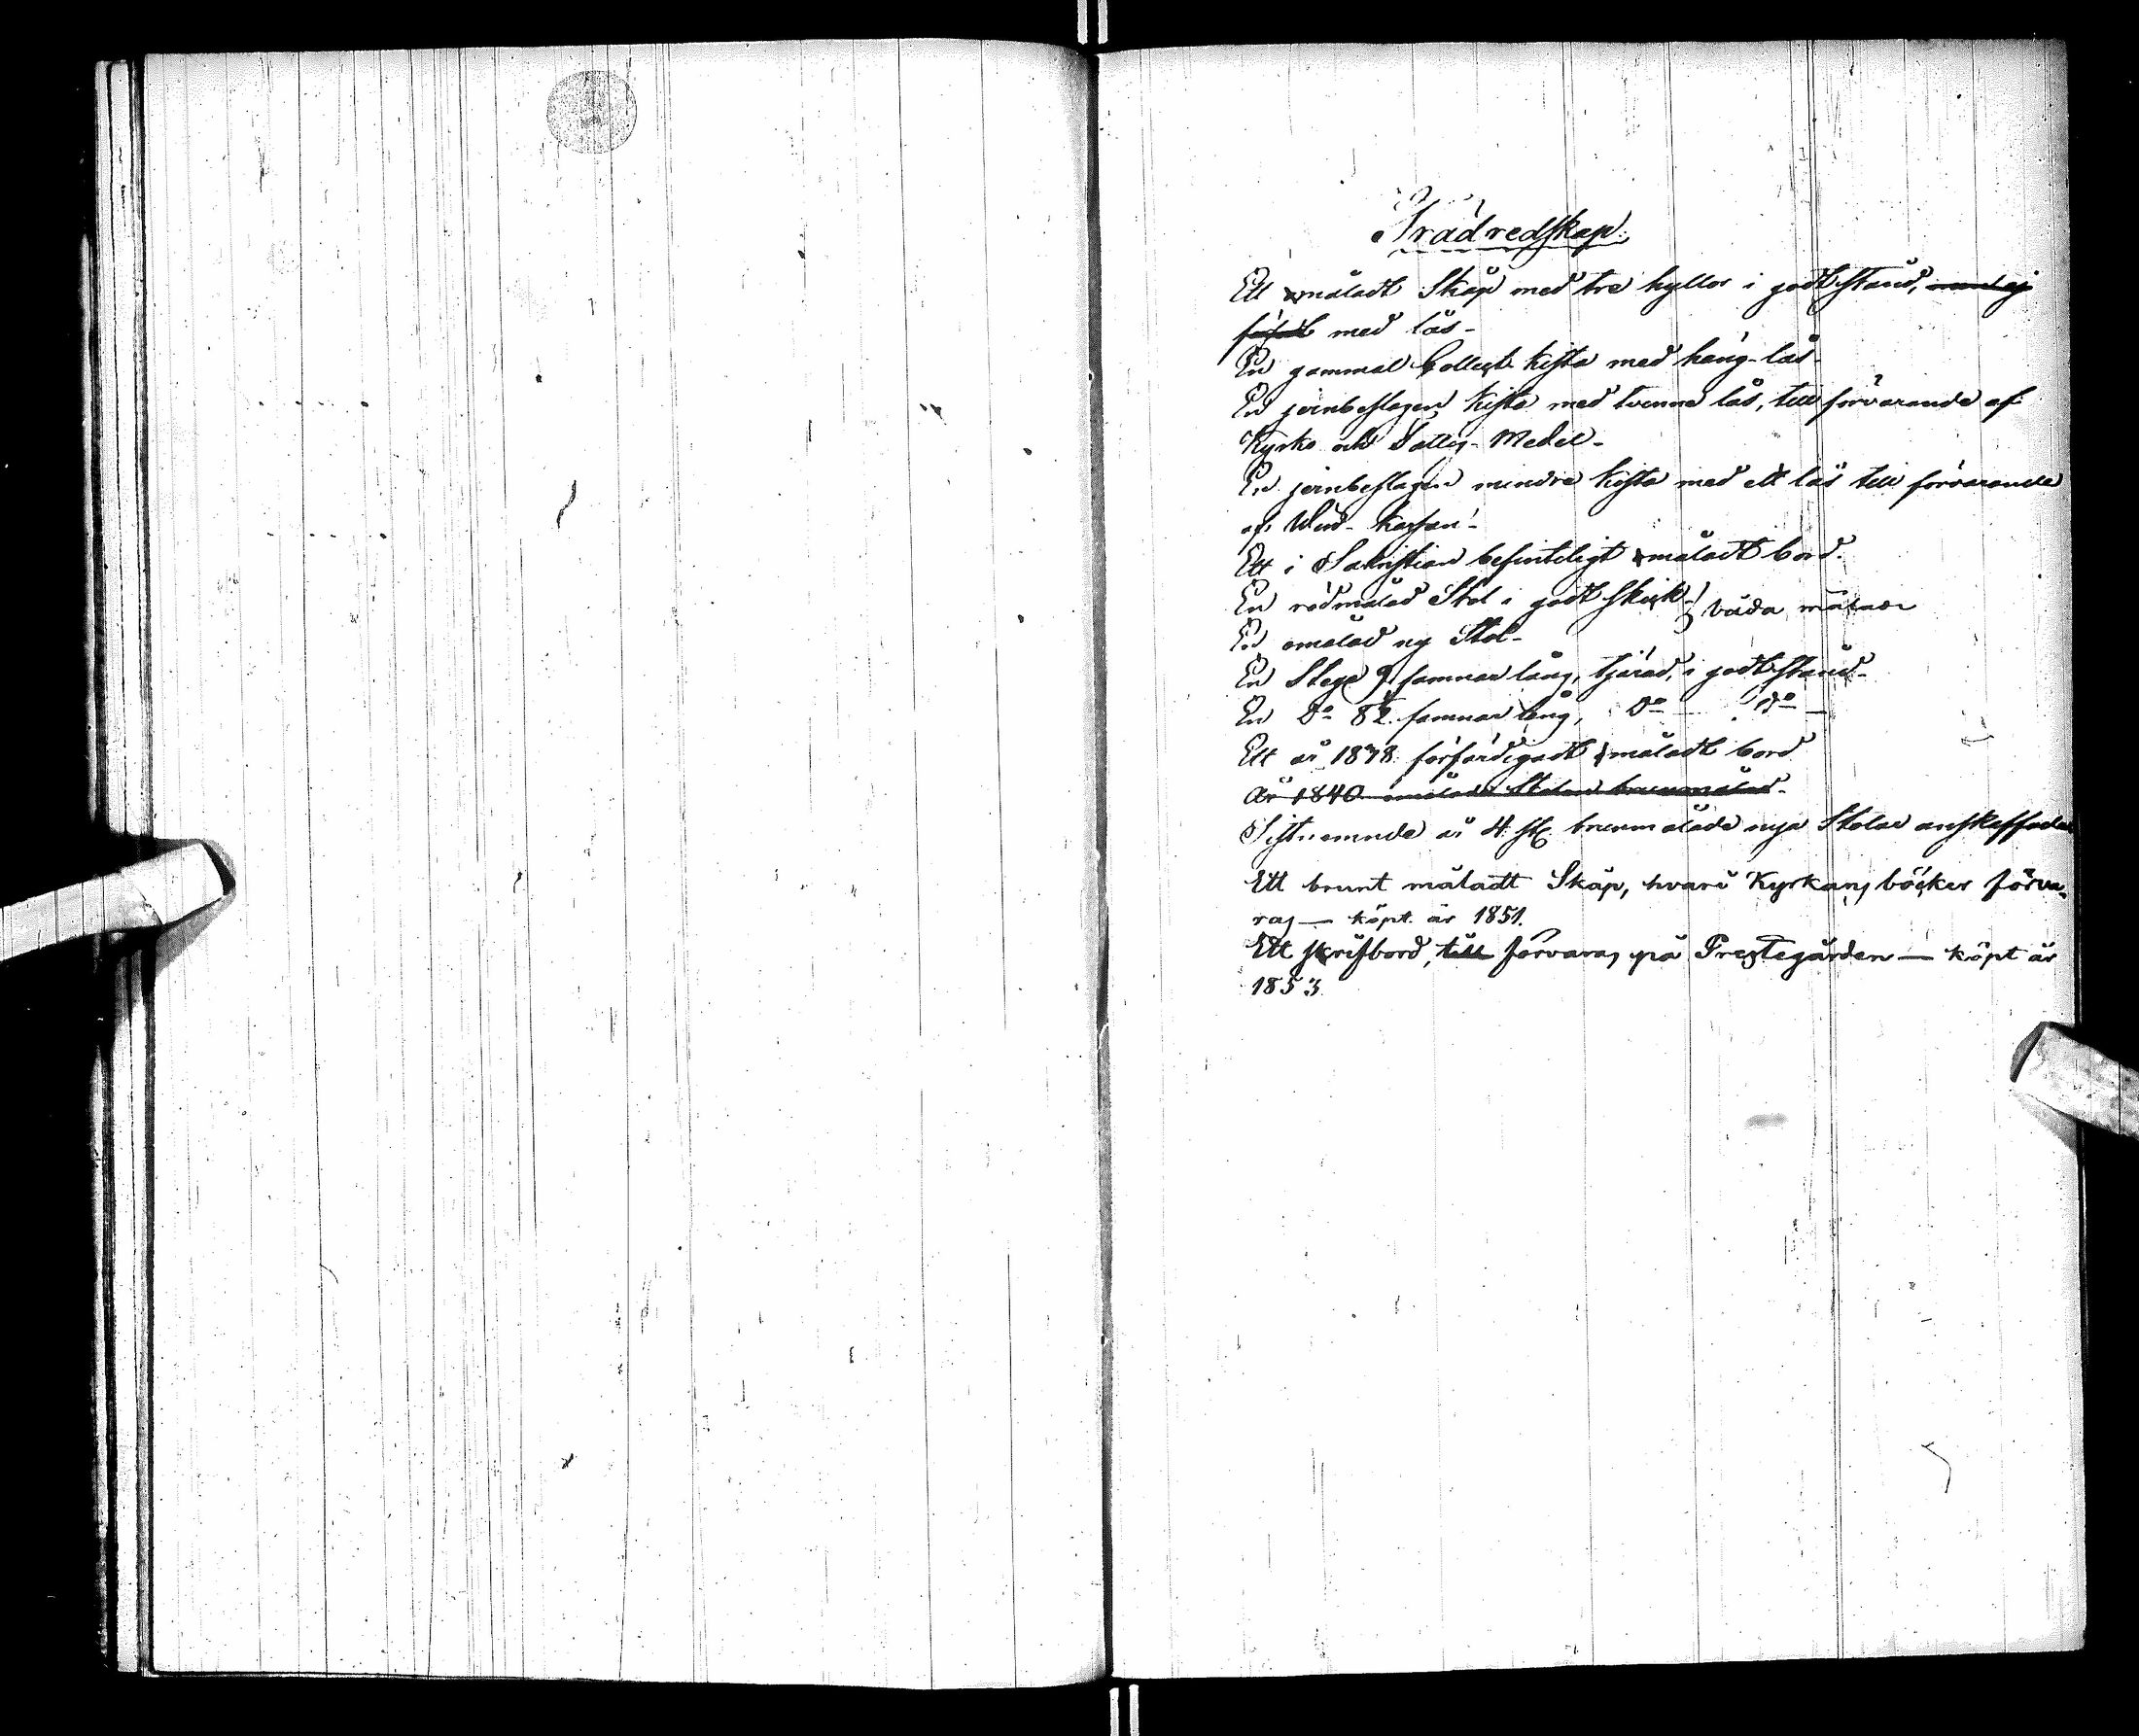 Trädredskap.
Ett måladt Skåp med tre hyllor i godt stånd, men ej
försedt med lås-
En gammal Collect Kista med häng-lås-
En jernbeslagen Kista med tvenne lås, till förvarande af
Kyrko och Fattig-Medel-
En jernbeslagen mindre Kista med ett lås till förvarande
af Kassan-
Ett i Sakristian befinteligt måladt bord.
En rödmålad Stol i godt skick- } båda målade
En omålad ny Stol-
En Stege 9 famnar lång, tjärad, i godt stånd-
En Do 8½ famnar lång, Do — Do —
Ett år 1838 förfärdigadt måladt bord
År 1840 omålade Stolen brunmålad-
Sistnemnde år 4 st brunmålade nya Stolar anskaffade
Ett brunt måladt Skåp, hvari Kyrkans böcker förva-
ras — köpt år 1851.
Ett skrifbord, till förvaras på Prestegården — köpt år
1853